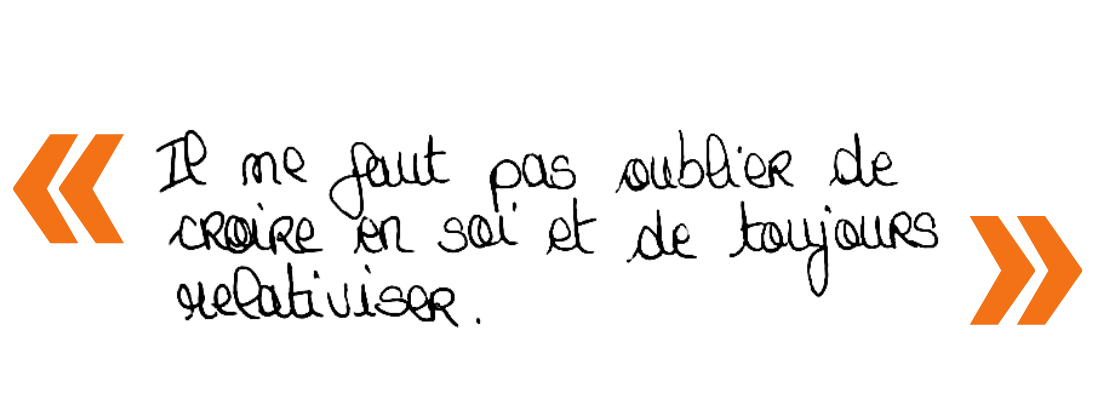 « Il ne faut pas oublier de
croire en soi et de toujours
relativiser. »